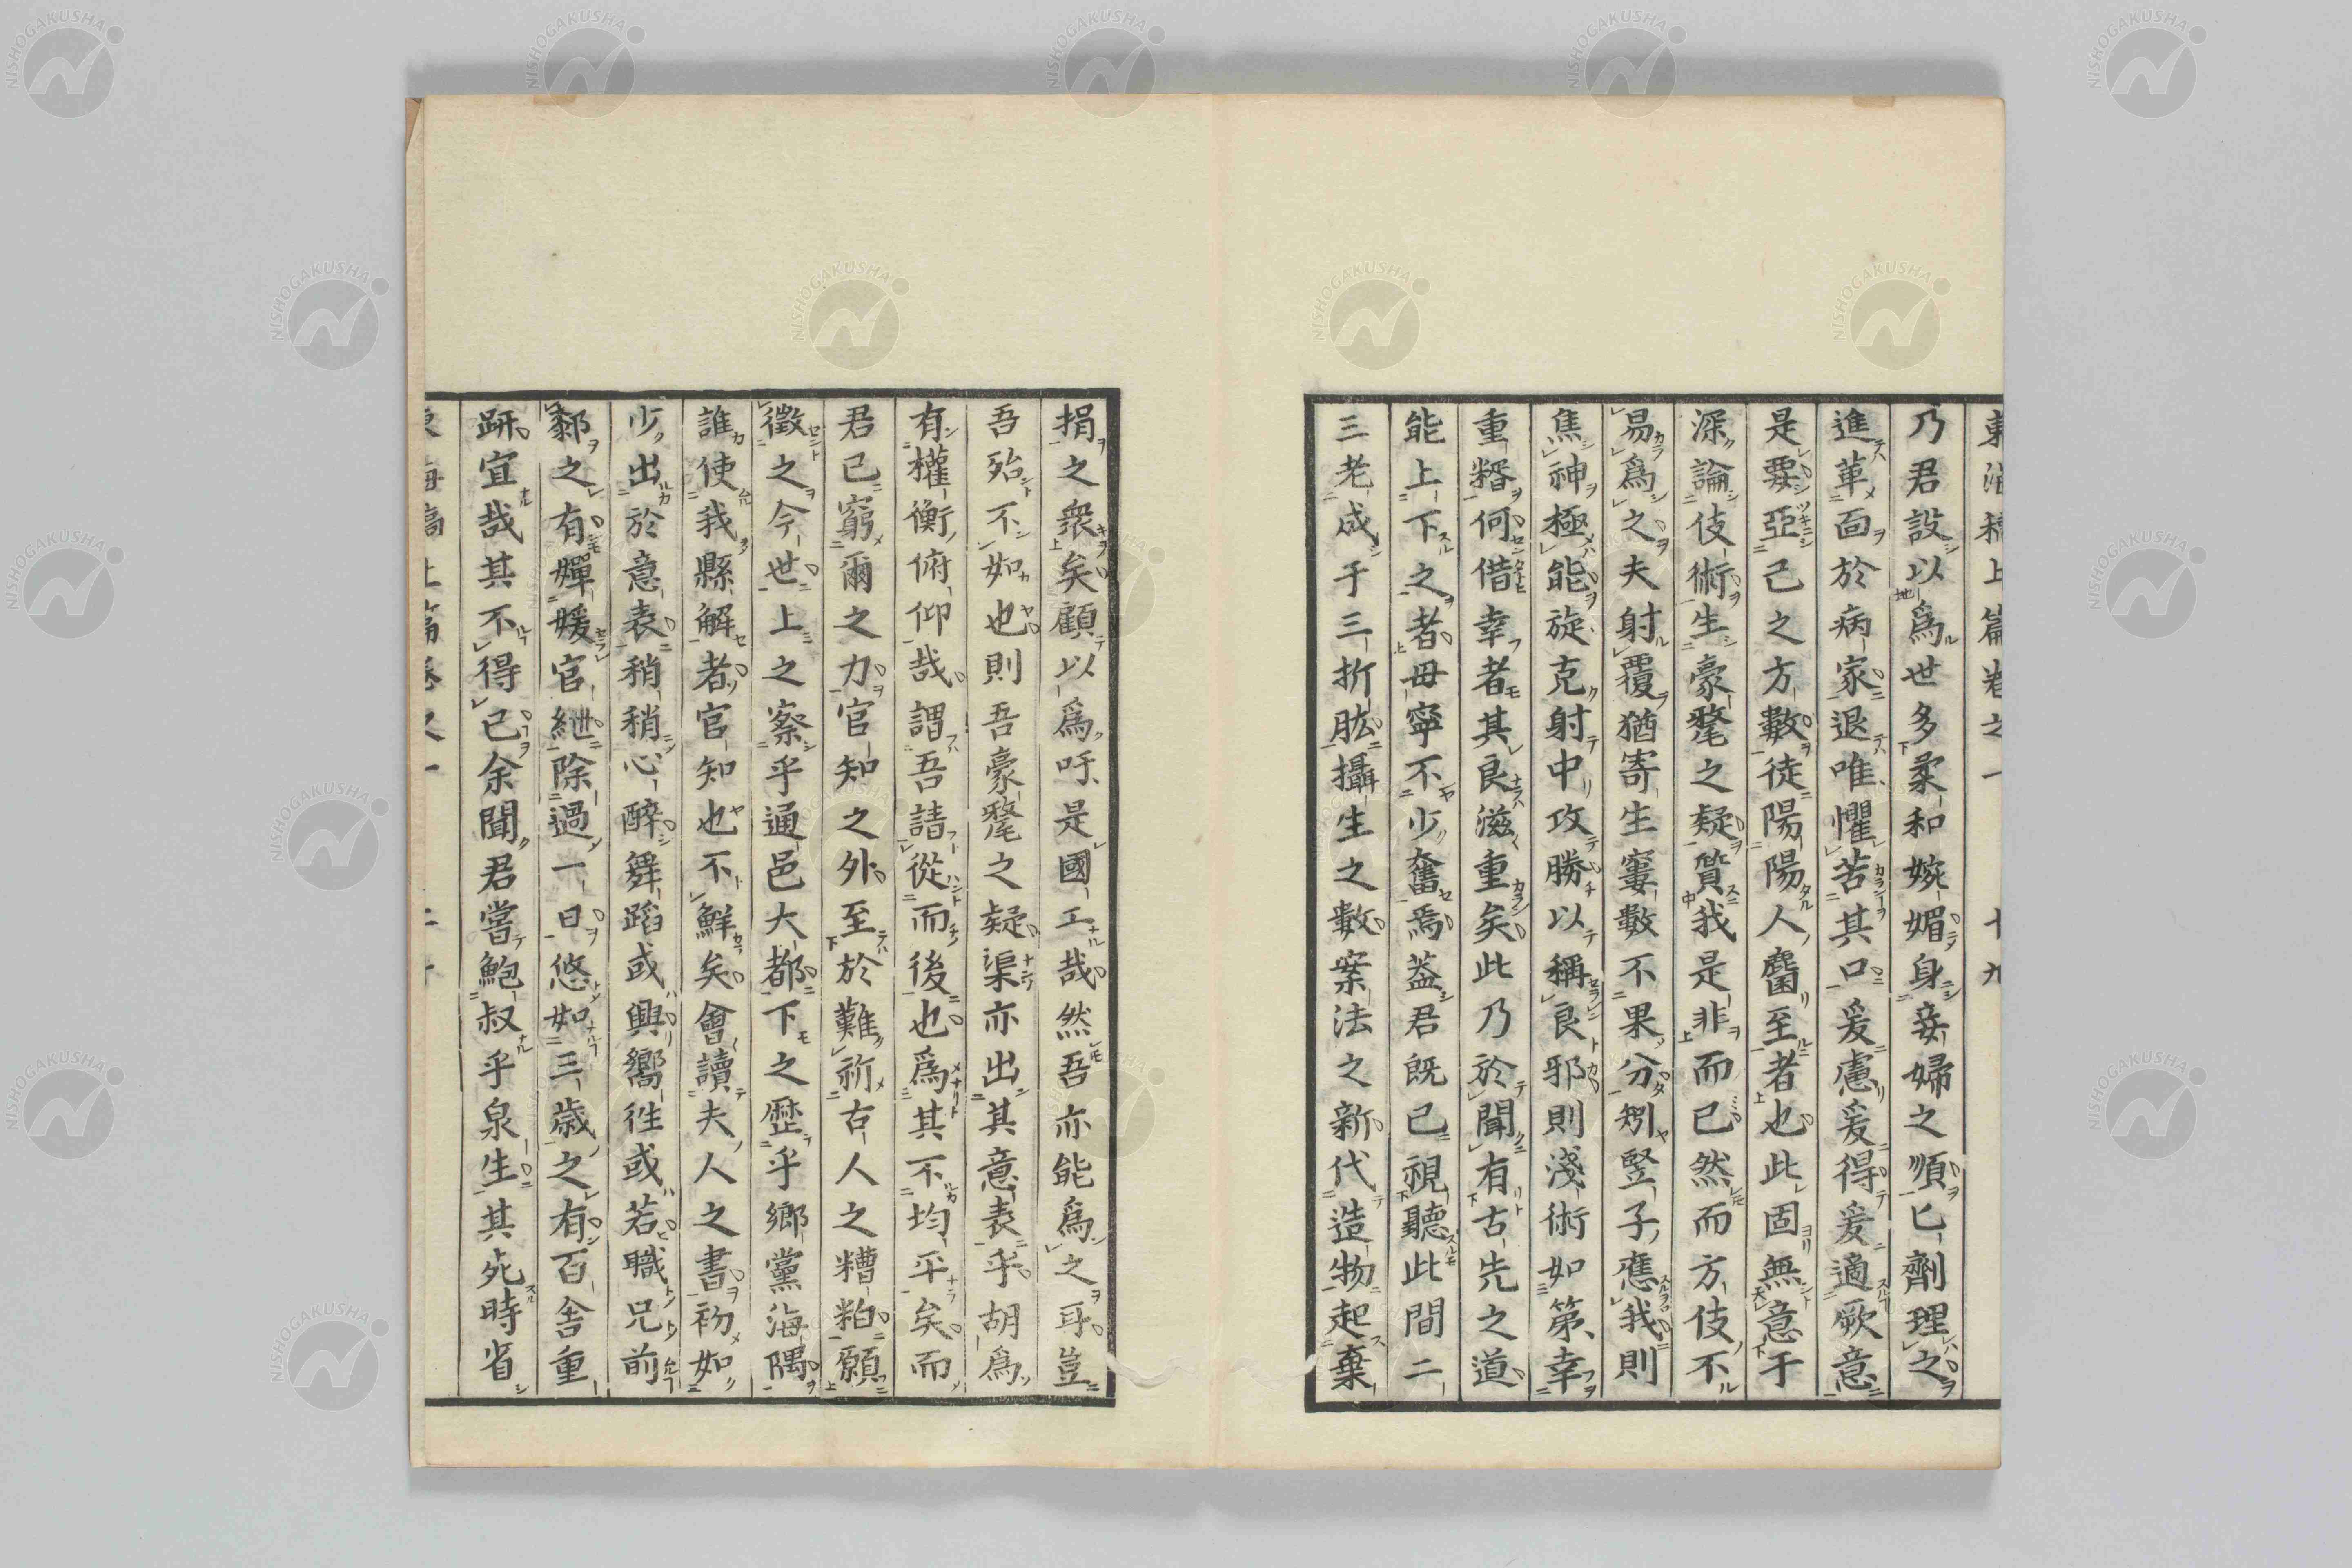 東海稿上篇卷之一 十九
乃君設以爲世多柔和婉媚身妾婦之順匕劑理之
進革面於病家退唯懼苦其口爰慮爰得爰適厥意
是要亞己之方數徒陽陽人齒至者也此固無意于
深論伎術生豪氂之疑質我是非而已然而方伎不
易爲之夫射覆猶寄生窶數不果分矧豎子應我則
焦神極能旋克射中攻勝以稱良邪則淺術如第幸
重糈何借幸者其良滋重矣此乃於聞有古先之道
能上下之者毋寧不少奮爲蓋君既已視聽此間二
三老成于三折肱攝生之數案法之新代造物起棄
捐之衆矣顧以爲吁是國工哉然吾亦能爲之耳豈
吾殆不如也則吾豪氂之疑渠亦出其意表乎胡爲
有權衡俯仰哉謂吾請從而後也爲其不均平矣而
君已窮爾之力官知之外至於難祈古人之糟粕願
徵之今世上之察乎通邑大都下之歷乎鄉黨海隅
誰使我縣解者官知也不鮮矣會讀夫人之書初如
少出於意表稍稍心醉舞蹈或興嚮往或若職兄前
鄰之有嬋媛官紲除過一日悠如三歳之有百舍重
趼宜哉其不得已余聞君嘗鮑叔乎泉生其死時省
東海稿上篇卷之一 二十